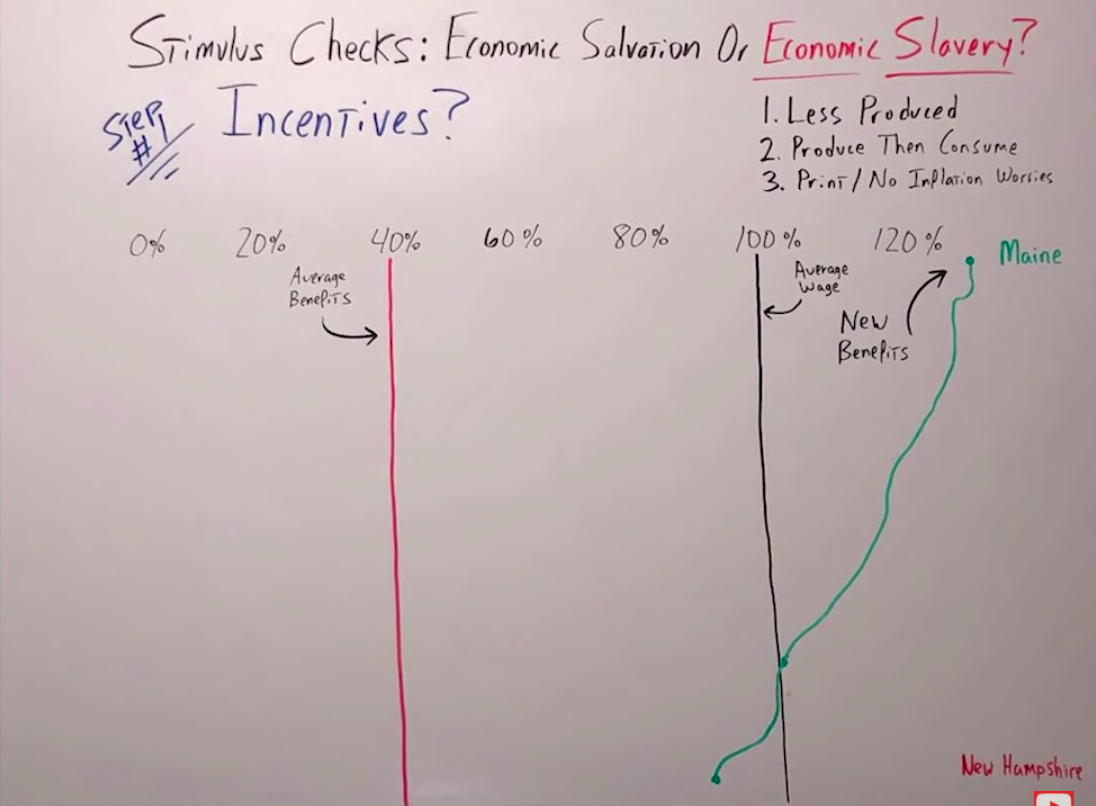 Stimulus Checks: Economic Salvation Or Economic Slavery?
Step #1
Incentives?
1. Less Produced
2. Produce Then Consume
3. Print / No Inflation Worries
0% 20% 40% 60% 80% 100% 120%
Maine
Average
Benefits
Average
Wage
New
Benefits
New Hampshire